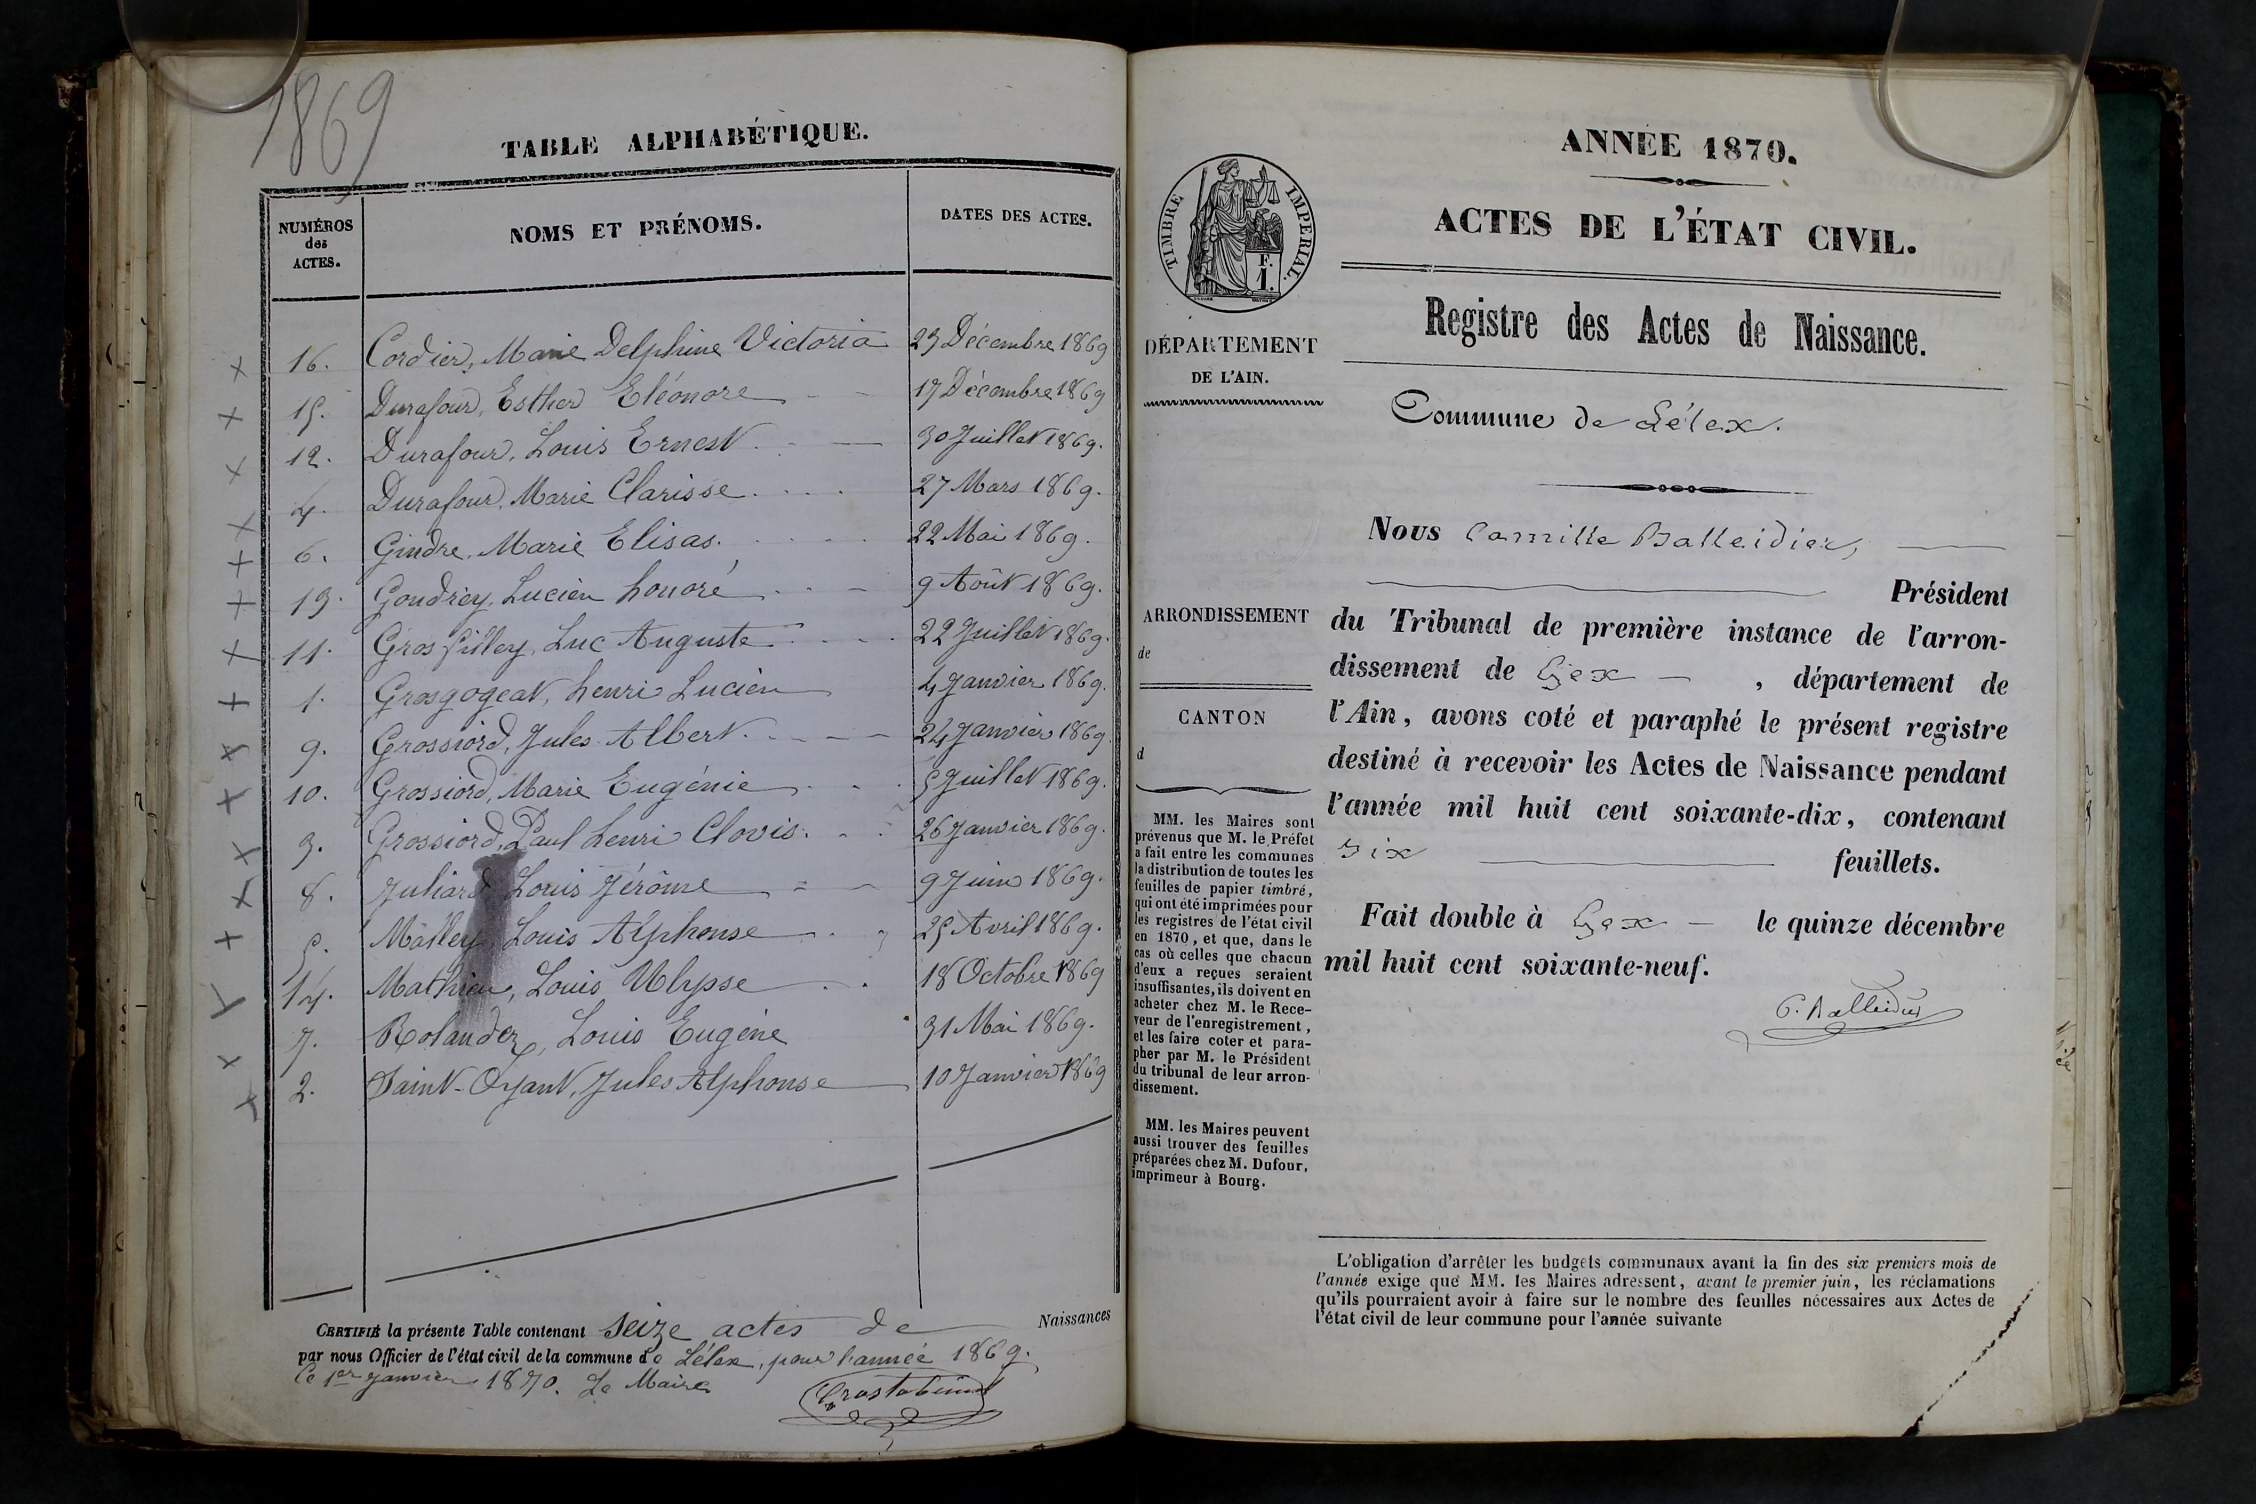 1869
TABLE ALPHABÉTIQUE.
NUMÉROS
des
ACTES.
NOMS ET PRÉNOMS.
DATES DES ACTES.
16. Cordier, Marie Delphine Victoria 23 Décembre 1869
15. Durafour, Esther Eléonore 17 Décembre 1869
12. Durafour, Louis Ernest 30 Juillet 1869.
4. Durafour, Marie Clarisse 27 Mars 1869.
6. Gindre, Marie Elisas. 22 Mai 1869.
13. Goudrey, Lucien honoré 9 Août 1869.
11. Grosfilley, Luc Auguste 22 Juillet 1869.
1. Grosgogeat, henri Lucien 4 Janvier 1869.
9. Grossiord, Jules Albert. 24 Janvier 1869.
10. Grossiord, Marie Eugénie 5 Juillet 1869.
3. Grossiord, Paul henri Clovis. 26 Janvier 1869.
8. Juliard Louis Jérôme 9 Juin 1869.
5. Mâlley, Louis Alphonse 25 Avril 1869.
14. Mathieu, Louis Ulysse 18 Octobre 1869
7. Rolandez, Louis Eugène 31 Mai 1869.
2. Saint-Oyant, Jules Alphonse 10 Janvier 1869
CERTIFIÉ la présente Table contenant seize actes de Naissances
par nous Officier de l'état civil de la commune de Lélex, pour l'année 1869.
Ce 1er Janvier 1870. Le Maire
ANNÉE 1870.
ACTES DE L'ÉTAT CIVIL.
TIMBRE IMPERIAL.
F.
1.
Registre des Actes de Naissance.
DÉPARTEMENT
DE L'AIN.
Commune de Lélex.
Nous Camille Balleidier,
Président
du Tribunal de première instance de l'arron-
dissement de Gex , département de
l'Ain, avons coté et paraphé le présent registre
destiné à recevoir les Actes de Naissance pendant
l'année mil huit cent soixante-dix, contenant
six feuillets.
Fait double à Gex le quinze décembre
mil huit cent soixante-neuf.
C. Balleidier
ARRONDISSEMENT
de
CANTON
d
MM. les Maires sont
prévenus que M. le Préfet
a fait entre les communes
la distribution de toutes les
feuilles de papier timbré,
qui ont été imprimées pour
les registres de l'état civil
en 1870, et que, dans le
cas où celles que chacun
d'eux a reçues seraient
insuffisantes, ils doivent en
acheter chez M. le Rece-
veur de l'enregistrement,
et les faire coter et para-
pher par M. le Président
du tribunal de leur arron-
dissement.
MM. les Maires peuvent
aussi trouver des feuilles
préparées chez M. Dufour,
imprimeur à Bourg.
L'obligation d'arrêter les budgets communaux avant la fin des six premiers mois de
l'année exige que MM. les Maires adressent, avant le premier juin, les réclamations
qu'ils pourraient avoir à faire sur le nombre des feuilles nécessaires aux Actes de
l'état civil de leur commune pour l'année suivante